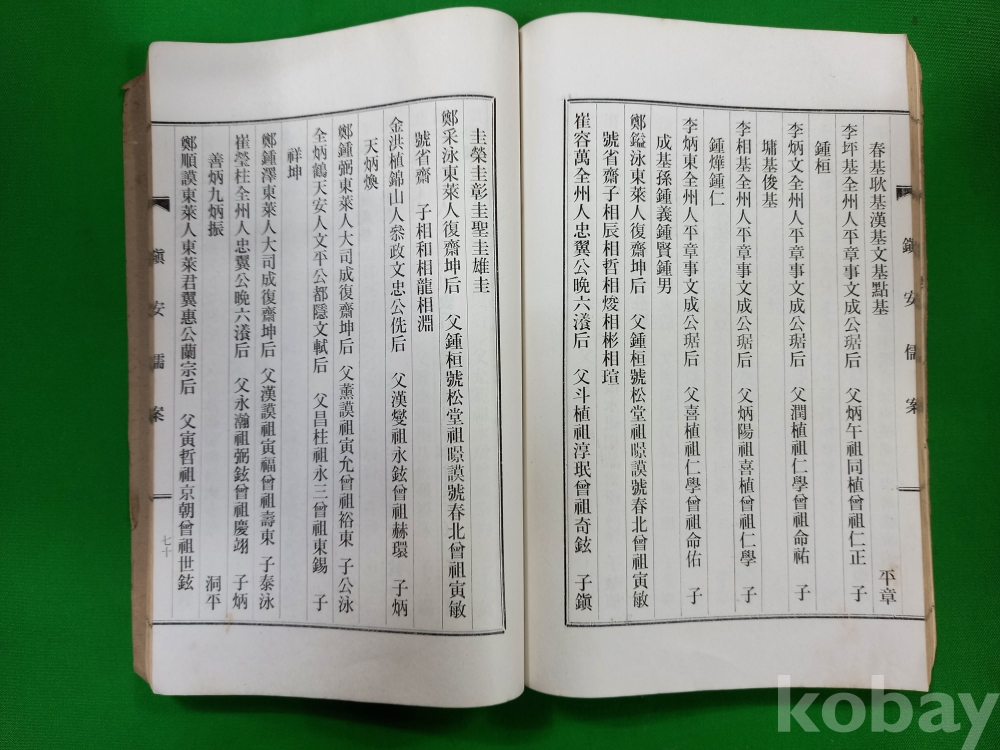 春基耿基漢基文基點基 平章
李坪基全州人平章事文成公琚后 父炳午祖同植曾祖仁正 子
鍾桓
李炳文全州人平章事文成公琚后 父潤植祖仁學曾祖命祐 子
墉基俊基
李相基全州人平章事文成公琚后 父炳陽祖喜植曾祖仁學 子
鍾燁鍾仁
李炳東全州人平章事文成公琚后 父喜植祖仁學曾祖命佑 子
成基孫鍾義鍾賢鍾男
鄭鎰泳東萊人復齋坤后 父鍾桓號松堂祖暻謨號春北曾祖寅敏
號省齋子相辰相哲相焌相彬相瑄
崔容萬全州人忠翼公晩六瀁后 父斗植祖淳珉曾祖奇鉉 子鎭
鎭安儒案
圭榮圭彰圭聖圭雄圭
鄭采泳東萊人復齋坤后 父鍾桓號松堂祖暻謨號春北曾祖寅敏
號省齋 子相和相龍相淵
金洪植錦山人叅政文忠公侁后 父漢燮祖永鉉曾祖赫環 子炳
天炳煥
鄭鍾弼東萊人大司成復齋坤后 父薰謨祖寅允曾祖裕東 子公泳
全炳鶴天安人文平公都隱文軾后 父昌柱祖永三曾祖東錫 子
祥坤
鄭鍾澤東萊人大司成復齋坤后 父漢謨祖寅福曾祖壽東 子泰泳
崔瑩柱全州人忠翼公晩六瀁后 父永瀚祖弼鉉曾祖慶翊 子炳
善炳九炳振 洞平
鄭順謨東萊人東萊君翼惠公蘭宗后 父寅哲祖京朝曾祖世鉉
鎭安儒案
七十
kobay